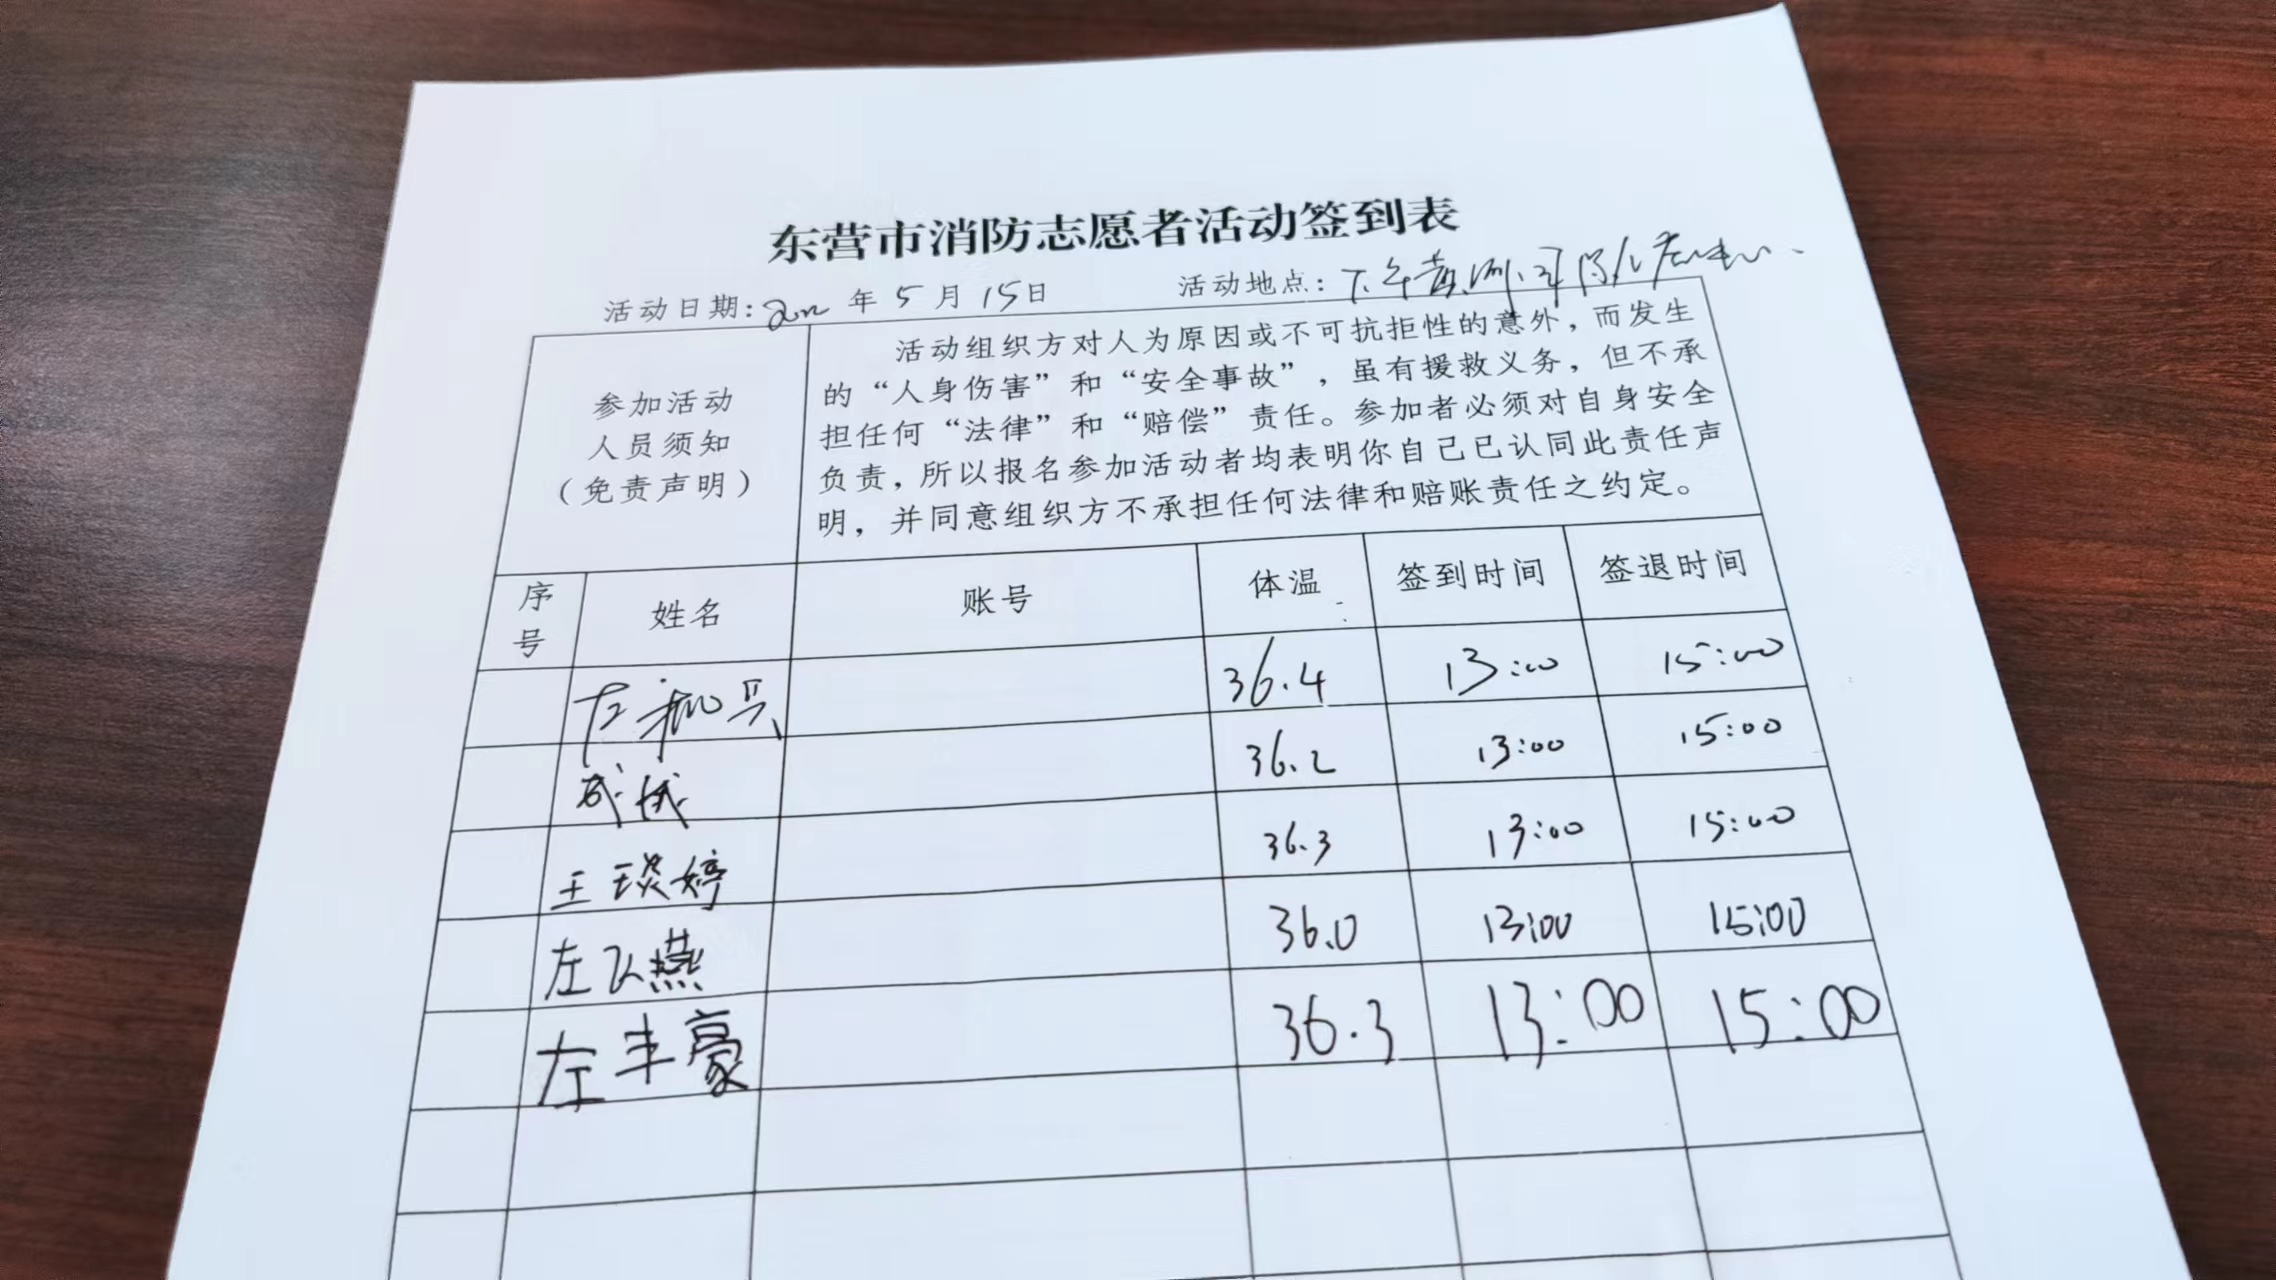 东营市消防志愿者活动签到表
活动日期:2022年5月15日 活动地点:
参加活动
人员须知
(免责声明)
活动组织方对人为原因或不可抗拒性的意外,而发生
的“人身伤害”和“安全事故”,虽有援救义务,但不承
担任何“法律”和“赔偿”责任。参加者必须对自身安全
负责,所以报名参加活动者均表明你自己已认同此责任声
明,并同意组织方不承担任何法律和赔账责任之约定。
序号 姓名 账号 体温 签到时间 签退时间
36.4 13:00 15:00
36.2 13:00 15:00
王琰婷 36.3 13:00 15:00
左飞燕 36.0 13:00 15:00
左丰豪 36.3 13:00 15:00